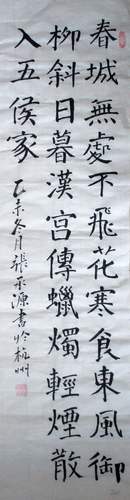 春城無處不飛花寒食東風御
柳斜日暮漢宮傳蠟燭輕煙散
入五侯家
乙未冬月張永源書於杭州